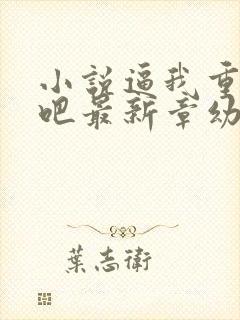 小说逼我重
吧最新章幼
葉志衛